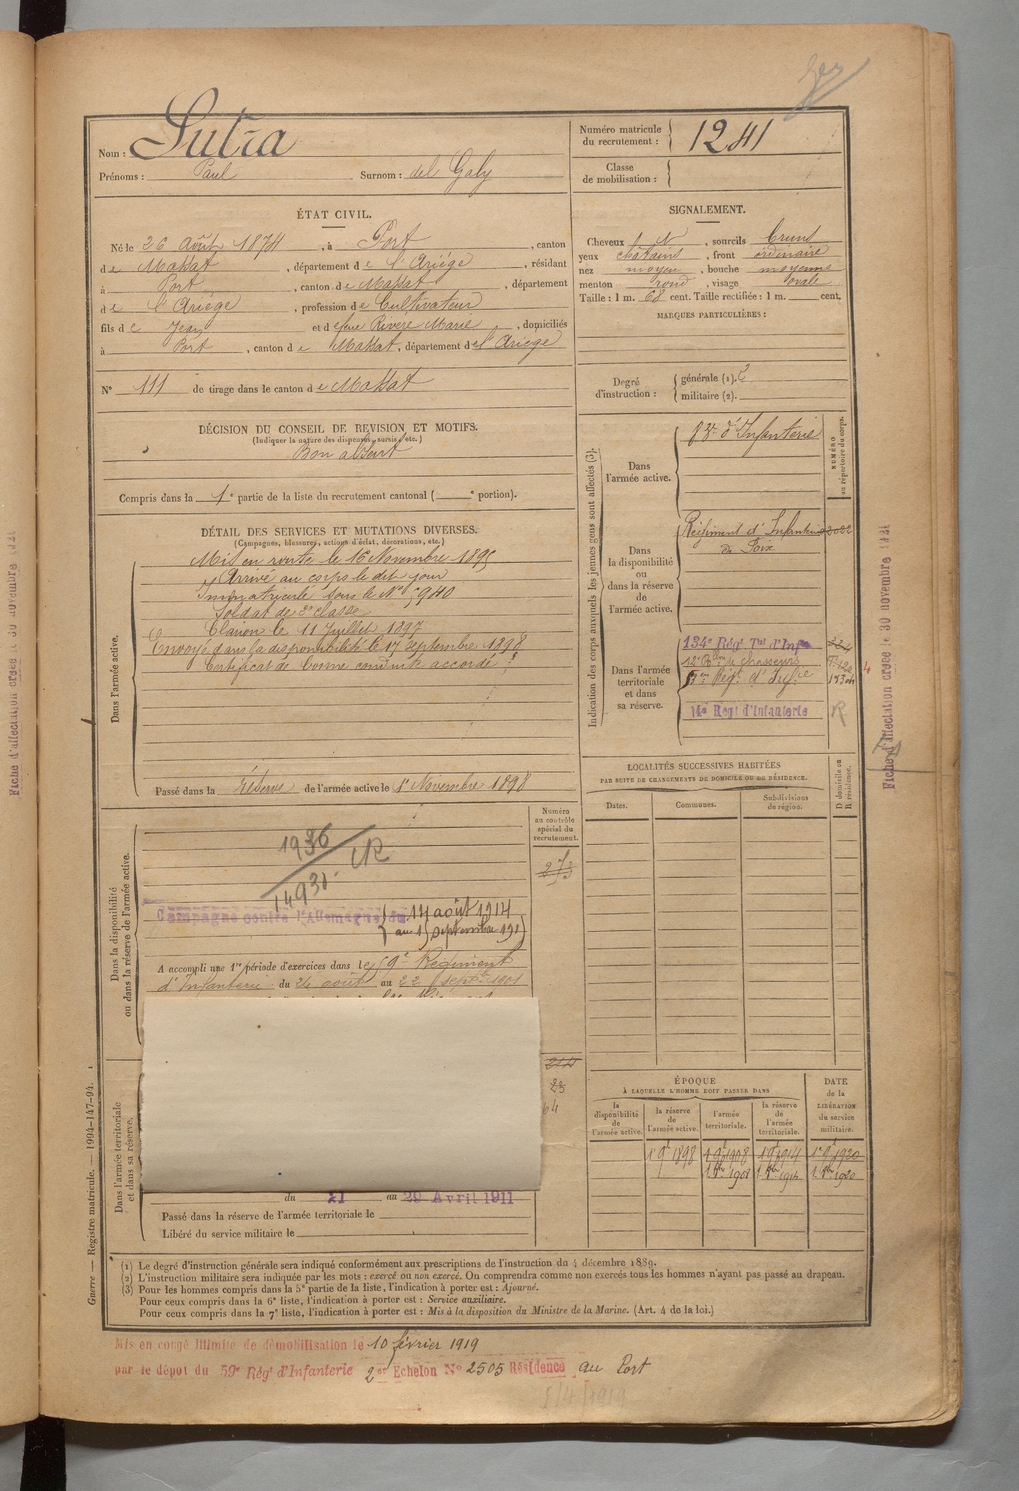 Nom : Sutra
Prénoms : Paul Surnom : del Galy
Numéro matricule du recrutement : 1241
Classe de mobilisation :
ÉTAT CIVIL.
Né le 26 Août 1874, à Port, canton
de Massat, département de l'Ariège, résidant
à Port, canton de Massat, département
de l'Ariège, profession de Cultivateur
fils de Jean et de feue Rivere Marie, domiciliés
à Port, canton de Massat, département de l'Ariège
N° 111 de tirage dans le canton de Massat
SIGNALEMENT.
Cheveux, sourcils bruns
yeux châtains, front ordinaire
nez moyen, bouche moyenne
menton rond, visage ovale
Taille : 1 m. 68 cent. Taille rectifiée : 1 m. cent.
MARQUES PARTICULIÈRES :
Degré d'instruction : générale (1). 2
militaire (2).
DÉCISION DU CONSEIL DE REVISION ET MOTIFS.
(Indiquer la nature des dispenses, sursis, etc.)
Bon absent
Compris dans la 1e partie de la liste du recrutement cantonal ( e portion).
DÉTAIL DES SERVICES ET MUTATIONS DIVERSES.
(Campagnes, blessures, actions d'éclat, décorations, etc.)
Dans l'armée active.
Mis en route le 16 Novembre 1895
Arrivé au corps le dit jour
Immatriculé sous le N° 5940
Soldat de 2e classe
Clairon le 11 Juillet 1897
Envoyé dans la disponibilité le 17 septembre 1898
Certificat de bonne conduite accordé
Passé dans la réserve de l'armée active le 1er Novembre 1898
Indication des corps auxquels les jeunes gens sont affectés (3).
NUMÉRO au répertoire du corps.
Dans l'armée active.
d'Infanterie
Dans la disponibilité ou dans la réserve de l'armée active.
Régiment d'Infanterie
de Foix
Dans l'armée territoriale et dans sa réserve.
134e Régt Tal d'Infie
12e Bon de chasseurs
Régt d'Infie
14e Régt d'Infanterie
R
LOCALITÉS SUCCESSIVES HABITÉES
PAR SUITE DE CHANGEMENTS DE DOMICILE OU DE RÉSIDENCE.
Dates.
Communes.
Subdivisions de région.
D. domicile ou R. résidence.
Numéro au contrôle spécial du recrutement.
273
Dans la disponibilité ou dans la réserve de l'armée active.
1936
14931
Campagne contre l'Allemagne du 14 août 1914
au 15 septembre 191
A accompli une 1re période d'exercices dans le 59e Régiment
d'Infanterie du 26 août au 22 septe 1901
214
23
64
Dans l'armée territoriale et dans sa réserve.
du 21 au 29 Avril 1911
Passé dans la réserve de l'armée territoriale le
Libéré du service militaire le
ÉPOQUE
À LAQUELLE L'HOMME DOIT PASSER DANS
DATE de la LIBÉRATION du service militaire.
la disponibilité de l'armée active.
la réserve de l'armée active.
l'armée territoriale.
la réserve de l'armée territoriale.
1 9bre 1898 1 9bre 1908 1 9bre 1914 1 9bre 1920
1 8bre 1908 1 8bre 1914 1 8bre 1920
(1) Le degré d'instruction générale sera indiqué conformément aux prescriptions de l'instruction du 4 décembre 1889.
(2) L'instruction militaire sera indiquée par les mots : exercé ou non exercé. On comprendra comme non exercés tous les hommes n'ayant pas passé au drapeau.
(3) Pour les hommes compris dans la 5e partie de la liste, l'indication à porter est : Ajourné.
Pour ceux compris dans la 6e liste, l'indication à porter est : Service auxiliaire.
Pour ceux compris dans la 7e liste, l'indication à porter est : Mis à la disposition du Ministre de la Marine. (Art. 4 de la loi.)
Guerre — Registre matricule. — 1094-147-94.
Mis en congé illimité de démobilisation le 10 février 1919
par le dépot du 59e Régt d'Infanterie 2e Echelon N° 2505 Résidence au Port
Fiche d'affectation créée le 30 novembre 1921
Fiche d'affectation créée le 30 novembre 1921